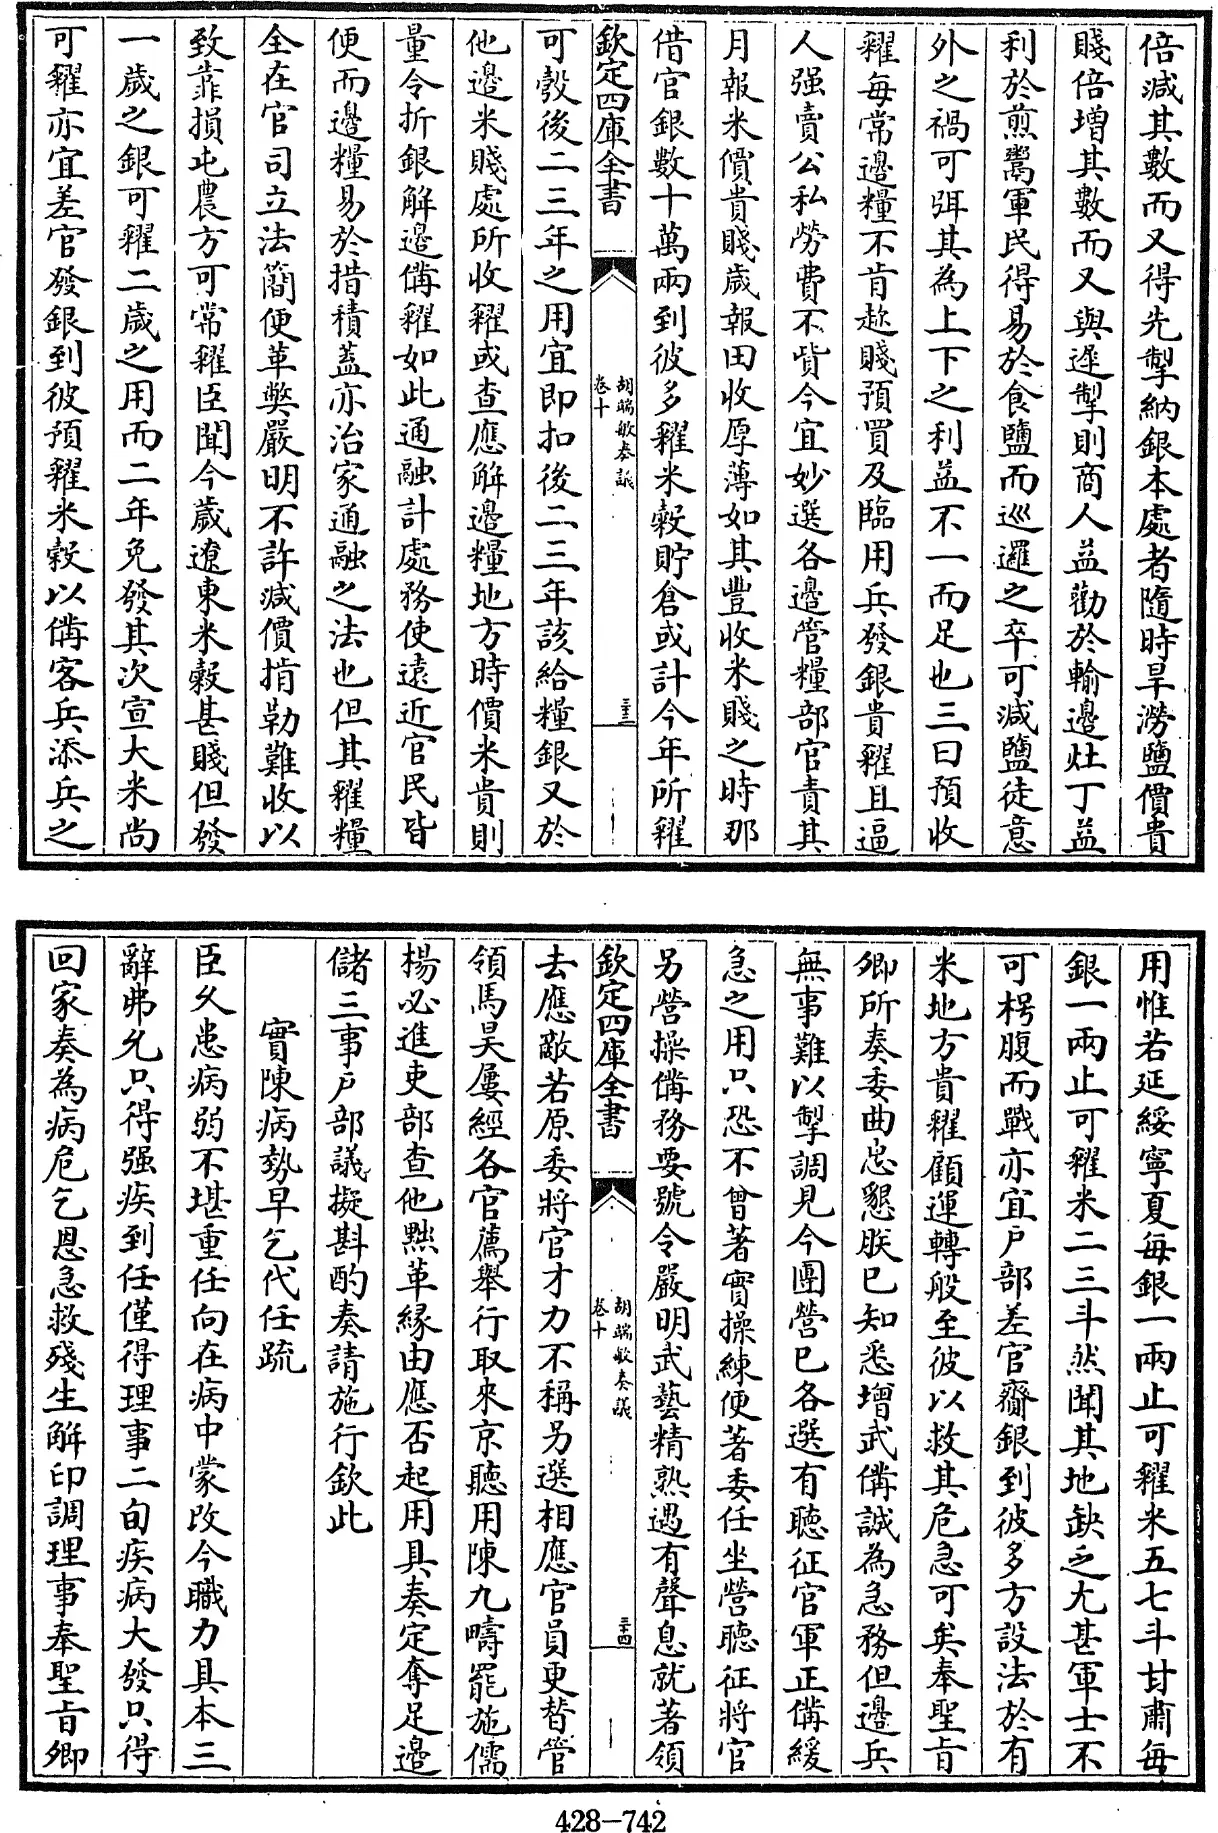 倍減其數而又得先掣納銀本處者隨時旱澇鹽價貴
賤倍增其數而又與遲掣則商人益勸於輸邊灶丁益
利於煎鬻軍民得易於食鹽而巡邏之卒可減鹽徒意
外之禍可弭其為上下之利益不一而足也三曰預收
糴每常邊糧不肯趂賤預買及臨用兵發銀貴糴且逼
人强賣公私勞費不貲今宜妙選各邊管糧部官責其
月報米價貴賤歲報田收厚薄如其豐收米賤之時那
借官銀數十萬兩到彼多糴米糓貯倉或計今年所糴
欽定四庫全書
胡端敏奏議
卷十
三十三
可彀後二三年之用宜即扣後二三年該給糧銀又於
他邊米賤處所收糴或查應解邊糧地方時價米貴則
量令折銀解邊備糴如此通融計處務使遠近官民皆
便而邊糧易於措積蓋亦治家通融之法也但其糴糧
全在官司立法簡便革弊嚴明不許減價掯勒難收以
致靠損屯農方可常糴臣聞今歲遼東米糓甚賤但發
一歲之銀可糴二歲之用而二年免發其次宣大米尚
可糴亦宜差官發銀到彼預糴米糓以備客兵添兵之
用惟若延綏寧夏每銀一兩止可糴米五七斗甘肅每
銀一兩止可糴米二三斗然聞其地缺乏尤甚軍士不
可枵腹而戰亦宜户部差官齎銀到彼多方設法於有
米地方貴糴顧運轉般至彼以救其危急可矣奉聖旨
卿所奏委曲忠懇朕已知悉增武備誠為急務但邊兵
無事難以掣調見今團營已各選有聽征官軍正備緩
急之用只恐不曾著實操練便著委任坐營聽征將官
另營操備務要號令嚴明武藝精熟遇有聲息就著領
欽定四庫全書
胡端敏奏議
卷十
三十四
去應敵若原委將官才力不稱另選相應官員更替管
領馬昊屢經各官薦舉行取來京聽用陳九疇罷施儒
楊必進吏部查他黜革緣由應否起用具奏定奪足邊
儲三事户部議擬斟酌奏請施行欽此
實陳病勢早乞代任疏
臣久患病弱不堪重任向在病中蒙改今職力具本三
辭弗允只得强疾到任僅得理事二旬疾病大發只得
回家奏為病危乞恩急救殘生解印調理事奉聖旨卿
428-742